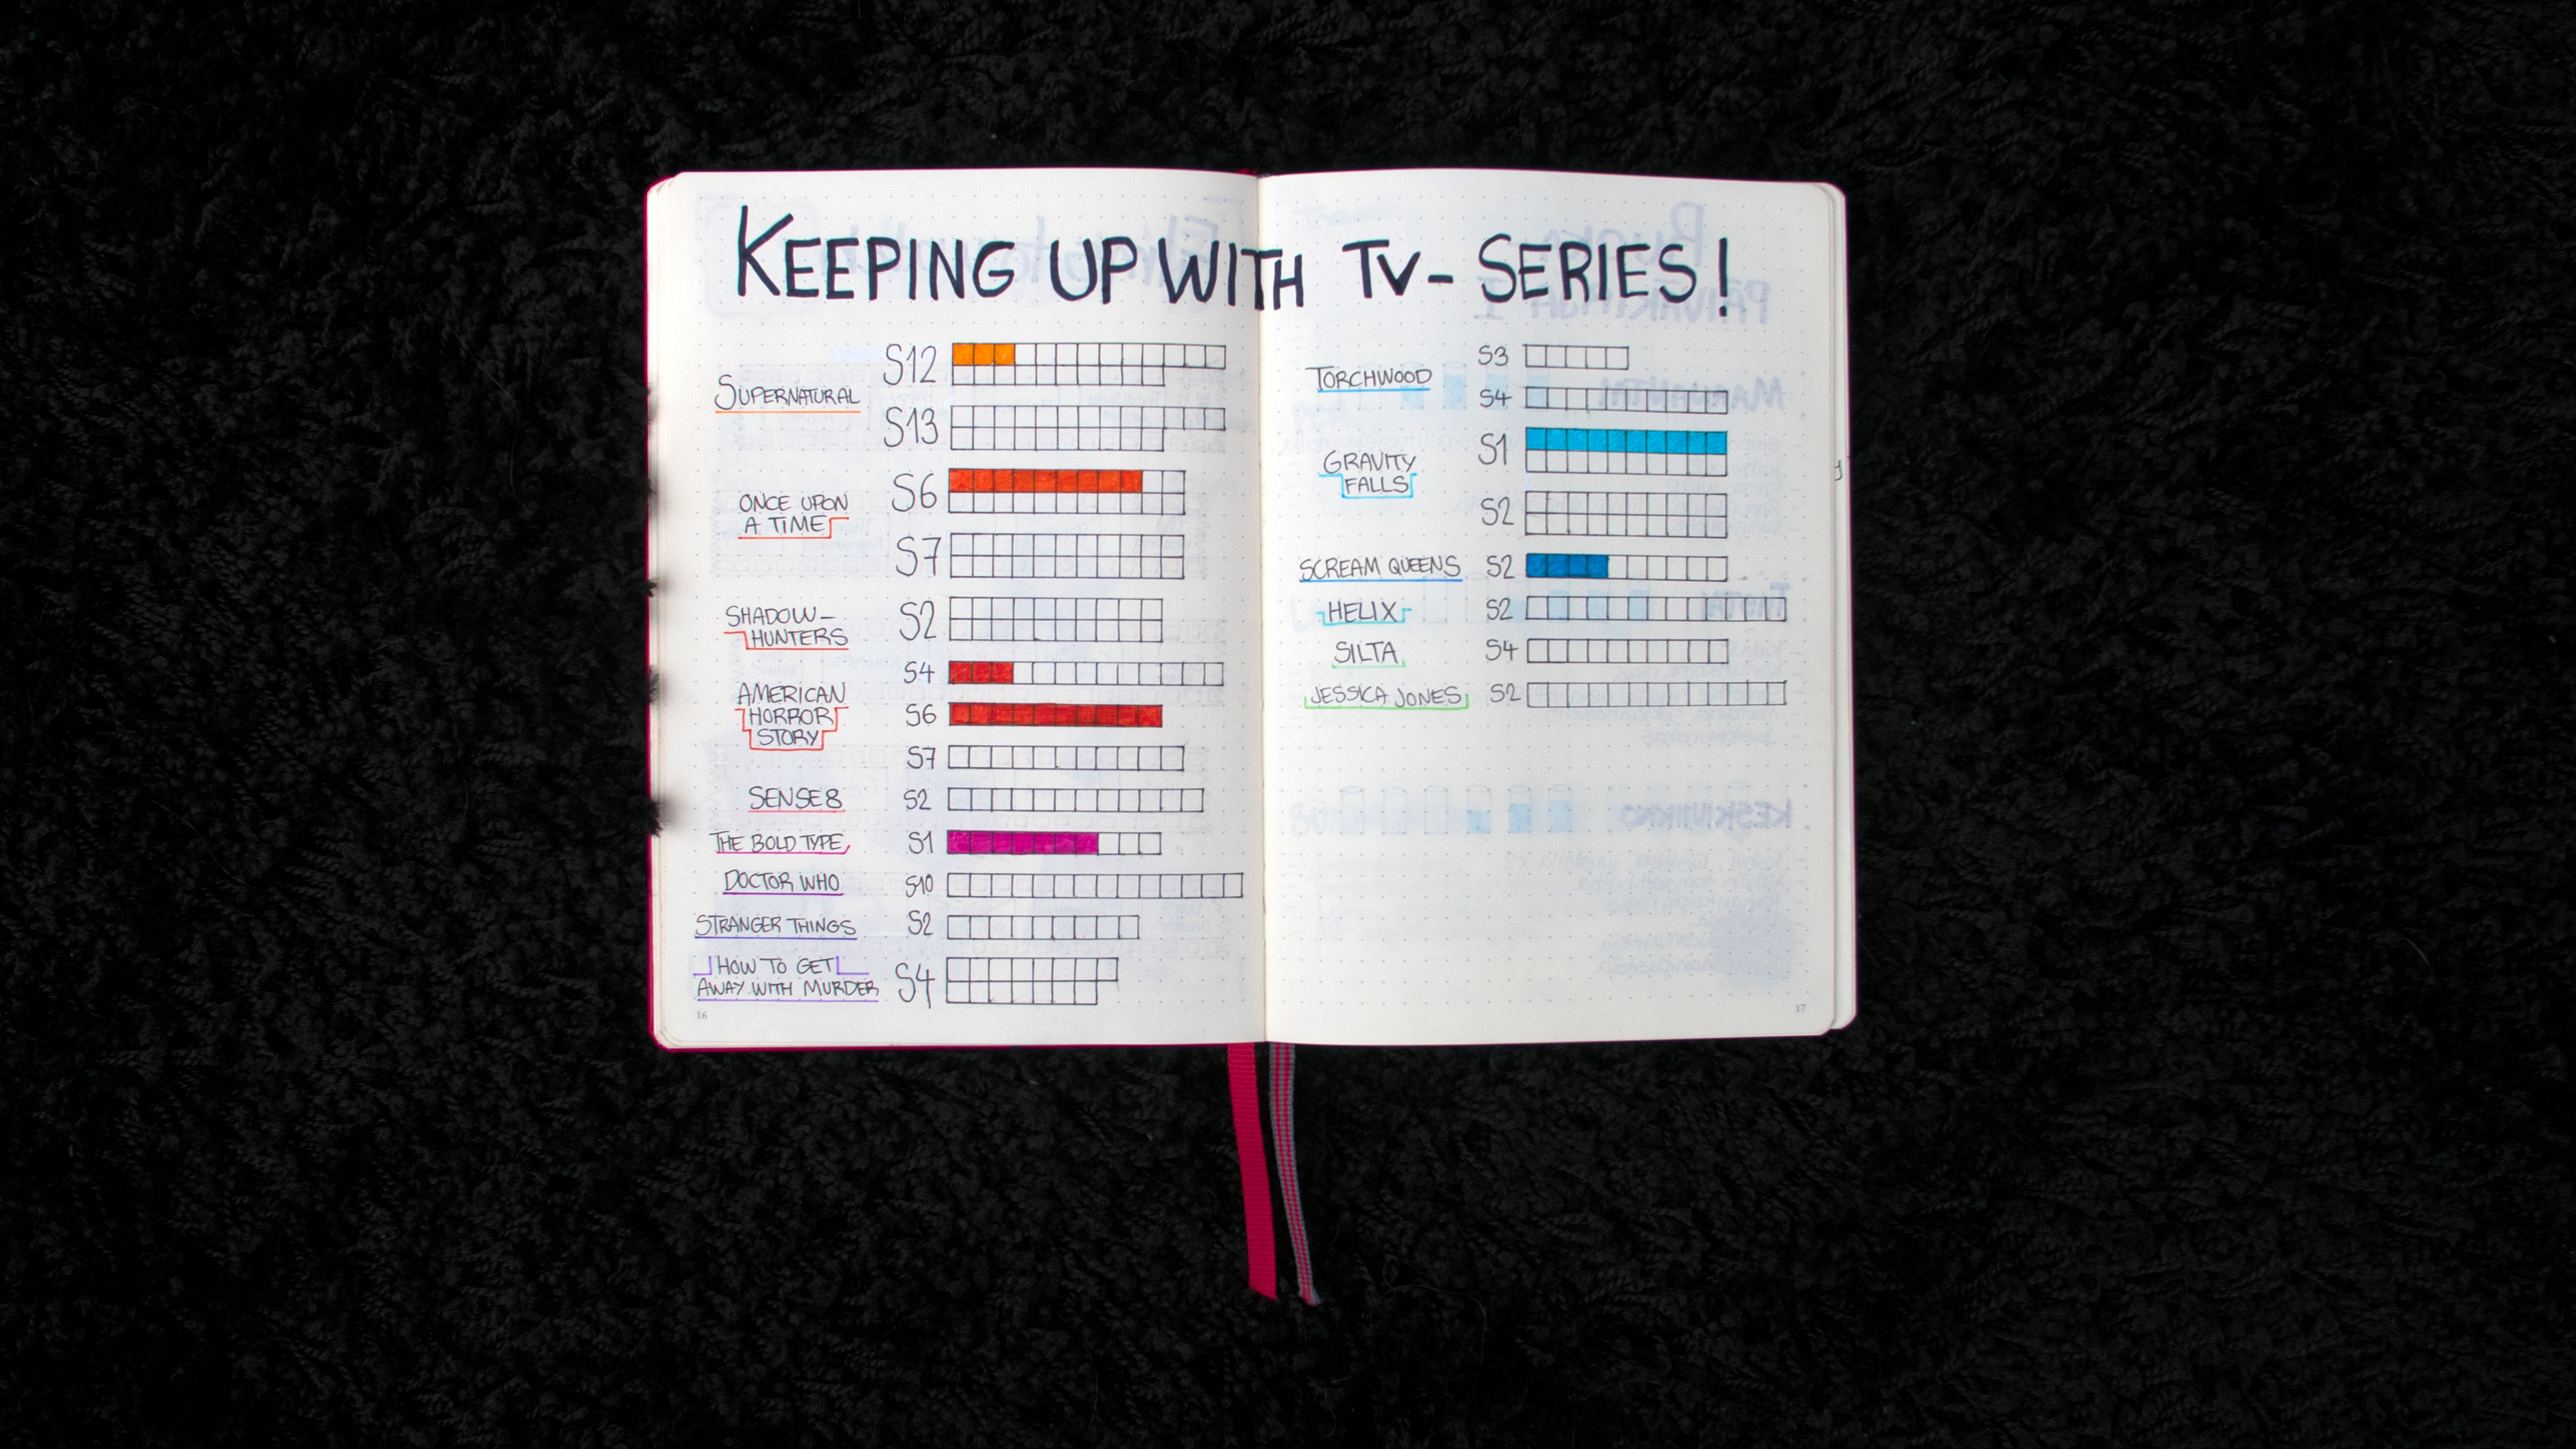 KEEPING UP WITH TV-SERIES!
SUPERNATURAL
S12
S13
ONCE UPON
A TIME
S6
S7
SHADOW-
HUNTERS
S2
AMERICAN
HORROR
STORY
S4
S6
S7
SENSE8 S2
THE BOLD TYPE S1
DOCTOR WHO S10
STRANGER THINGS S2
HOW TO GET
AWAY WITH MURDER S4
16
TORCHWOOD
S3
S4
GRAVITY
FALLS
S1
S2
SCREAM QUEENS S2
HELIX S2
SILTA S4
JESSICA JONES S2
17